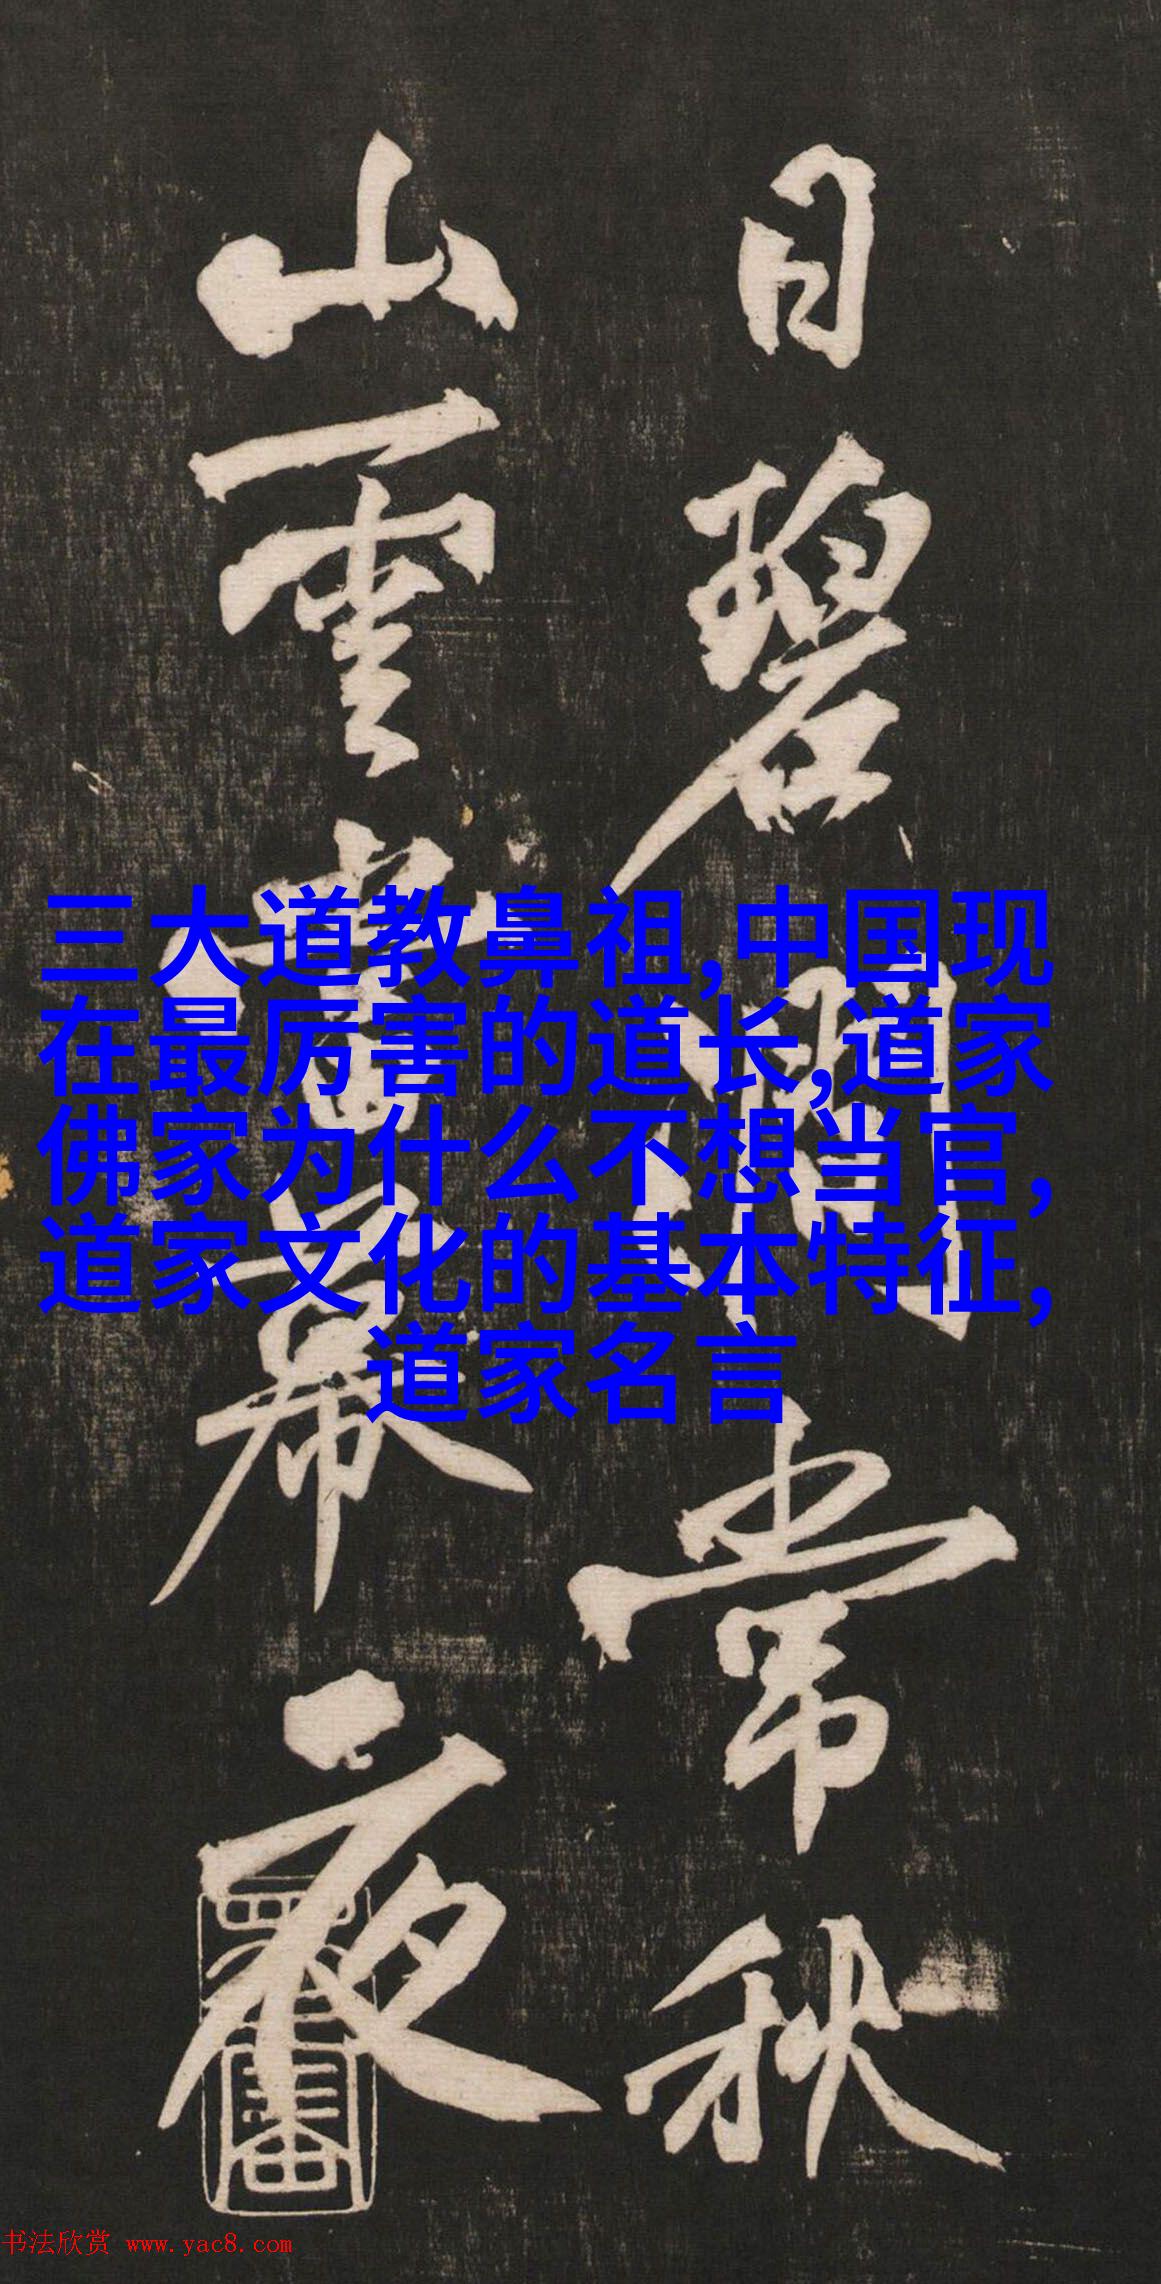 日碧澗常秋
山雲當幕夜
三大道教鼻祖,中国现
在最厉害的道长,道家
佛家为什么不想当官,
道家文化的基本特征,
道家名言
书法欣赏 www.yac8.com